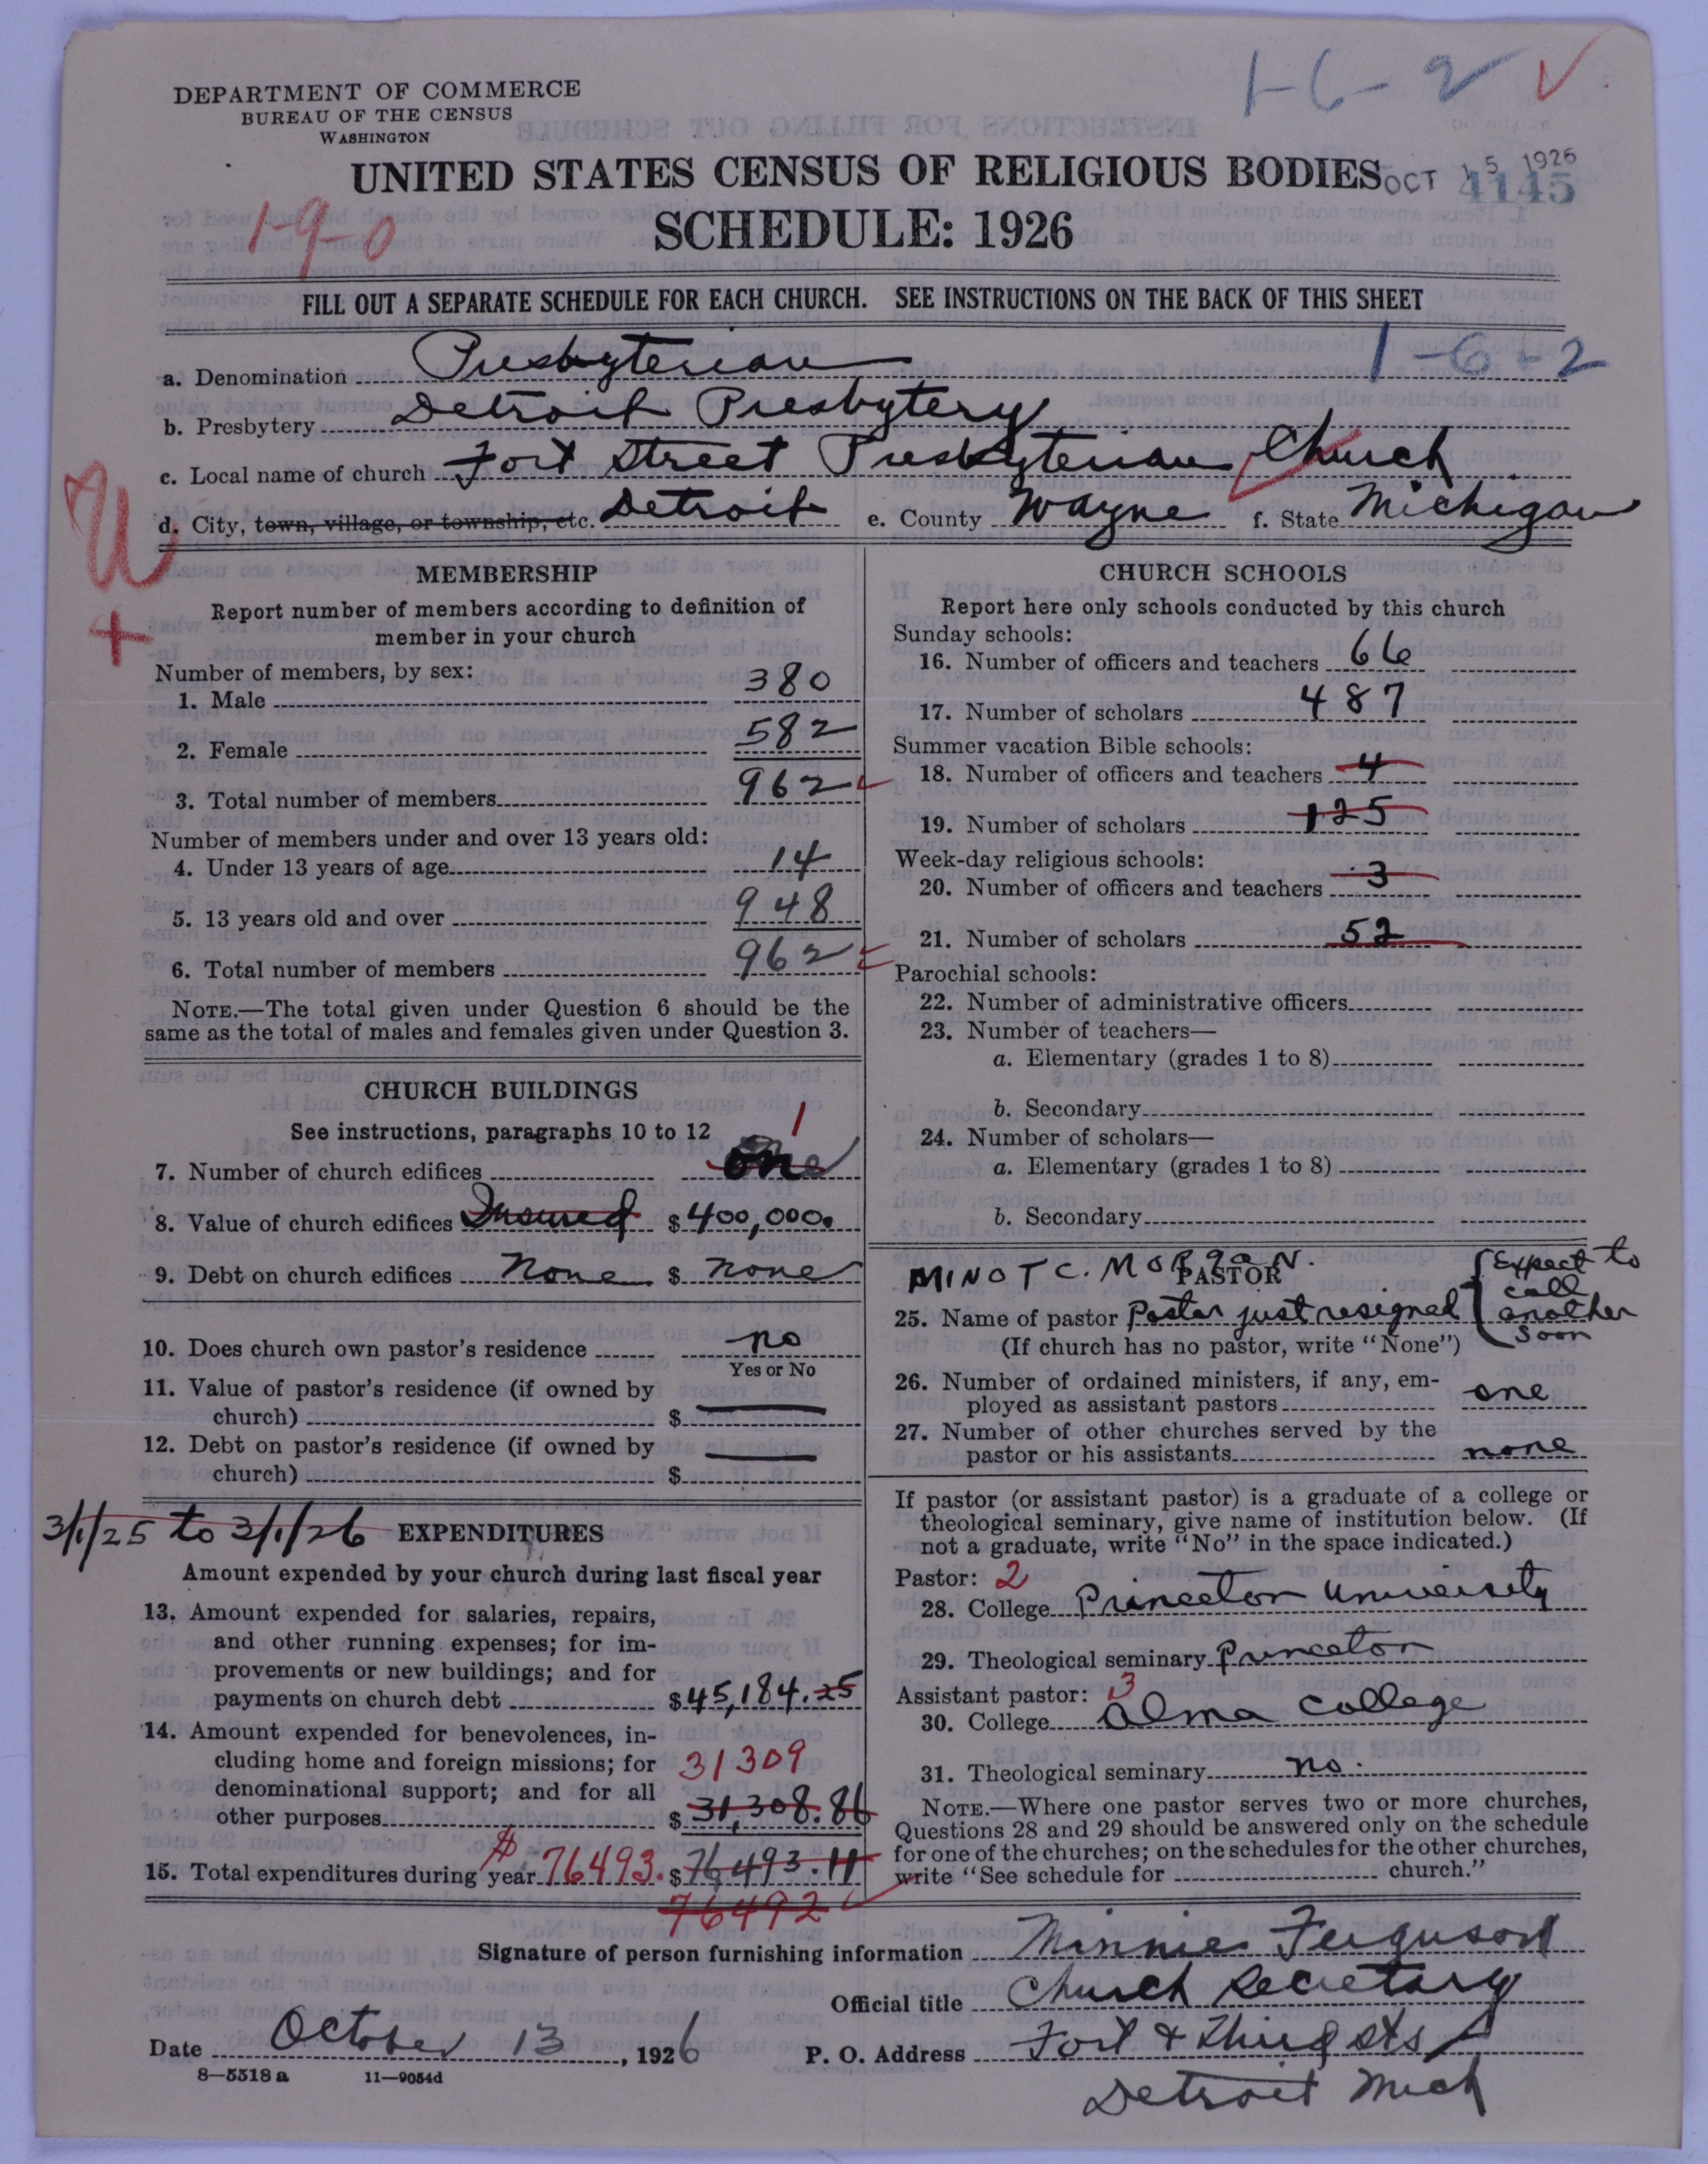 1-6-2 ✓
DEPARTMENT OF COMMERCE
BUREAU OF THE CENSUS
WASHINGTON
UNITED STATES CENSUS OF RELIGIOUS BODIES
OCT 15 1926
4145
SCHEDULE: 1926
1-9-0
FILL OUT A SEPARATE SCHEDULE FOR EACH CHURCH. SEE INSTRUCTIONS ON THE BACK OF THIS SHEET
1-6-2
a. Denomination Presbyterian
b. Presbytery Detroit Presbytery
c. Local name of church Fort Street Presbyterian Church
d. City, town, village, or township, etc. Detroit e. County Wayne f. State Michigan
MEMBERSHIP
Report number of members according to definition of
member in your church
Number of members, by sex:
1. Male 380
2. Female 582
3. Total number of members 962
Number of members under and over 13 years old:
4. Under 13 years of age 14
5. 13 years old and over 948
6. Total number of members 962
NOTE.—The total given under Question 6 should be the
same as the total of males and females given under Question 3.
CHURCH BUILDINGS
See instructions, paragraphs 10 to 12
1
7. Number of church edifices one
8. Value of church edifices Insured $400,000.
9. Debt on church edifices None $ none
10. Does church own pastor's residence no
Yes or No
11. Value of pastor's residence (if owned by
church) $
12. Debt on pastor's residence (if owned by
church) $
3/1/25 to 3/1/26 EXPENDITURES
Amount expended by your church during last fiscal year
13. Amount expended for salaries, repairs,
and other running expenses; for im-
provements or new buildings; and for
payments on church debt $45,184.25
14. Amount expended for benevolences, in-
cluding home and foreign missions; for 31309
denominational support; and for all
other purposes $31,308.86
15. Total expenditures during year $76493. $76,493.11
76492
CHURCH SCHOOLS
Report here only schools conducted by this church
Sunday schools:
16. Number of officers and teachers 66
17. Number of scholars 487
Summer vacation Bible schools:
18. Number of officers and teachers 4
19. Number of scholars 125
Week-day religious schools:
20. Number of officers and teachers 3
21. Number of scholars 52
Parochial schools:
22. Number of administrative officers
23. Number of teachers—
a. Elementary (grades 1 to 8)
b. Secondary
24. Number of scholars—
a. Elementary (grades 1 to 8)
b. Secondary
MINOT C. MORgaN.
PASTOR
25. Name of pastor Pastor just resigned { Expect to
call
another
soon
(If church has no pastor, write "None")
26. Number of ordained ministers, if any, em-
ployed as assistant pastors one
27. Number of other churches served by the
pastor or his assistants none
If pastor (or assistant pastor) is a graduate of a college or
theological seminary, give name of institution below. (If
not a graduate, write "No" in the space indicated.)
Pastor: 2
28. College Princeton University
29. Theological seminary Princeton
Assistant pastor: 3
30. College Alma College
31. Theological seminary no.
NOTE.—Where one pastor serves two or more churches,
Questions 28 and 29 should be answered only on the schedule
for one of the churches; on the schedules for the other churches,
write "See schedule for church."
Signature of person furnishing information Minnie Ferguson
Official title Church Secretary
Date October 13, 1926 P. O. Address Fort & Third Sts
Detroit Mich
8—5518 a 11—9054d